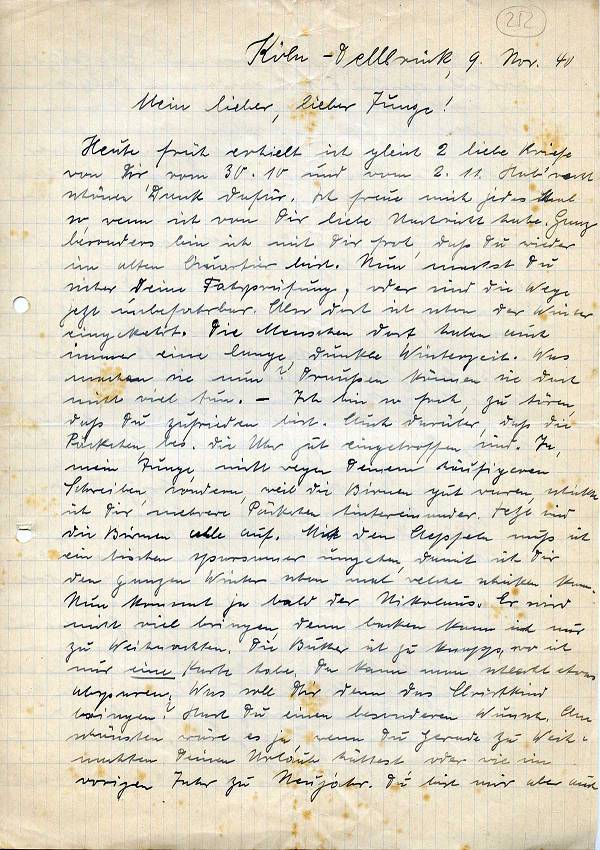 252
Köln-Dellbrück, 9. Nov. 40
Mein lieber, lieber Junge!
Heute früh erhielt ich gleich 2 liebe Briefe
von Dir vom 30.10 und vom 2.11. Hab' recht
schönen Dank dafür. Ich freue mich jedes Mal
so wenn ich von Dir liebe Nachricht habe. Ganz
besonders bin ich mit Dir froh, daß Du wieder
im alten Quartier bist. Nun machst Du
sicher Deine Fahrprüfung, oder sind die Wege
jetzt unbefahrbar. Aber dort ist schon der Winter
eingekehrt. Die Menschen dort haben auch
immer eine lange, dunkle Winterzeit. Was
machen sie nun? Draußen können sie doch
nicht viel tun. – Ich bin so froh, zu hören,
daß Du zufrieden bist. Auch darüber, daß die
Päckchen bes. die Uhr gut eingetroffen sind. Ja,
mein Junge, nicht wegen Deinem häufigeren
Schreiben, sondern, weil die Birnen gut waren, schickte
ich Dir mehrere Päckchen hintereinander. Jetzt sind
die Birnen alle auf. Mit den Aepfeln muß ich
ein bischen sparsamer umgehen, damit ich Dir
den ganzen Winter schon mal welche schicken kann.
Nun kommt ja bald der Nikolaus. Er wird
nicht viel bringen, denn backen kann ich nur
zu Weihnachten. Die Butter ist zu knapp, wo ich
nur eine Karte habe. Da kann man schlecht etwas
absparen. Was soll Dir denn das Christkind
bringen? Hast Du einen besonderen Wunsch. Am
schönsten wäre es ja wenn Du gerade zu Weih-
nachten Deinen Urlaub hättest oder wie im
vorigen Jahr zu Neujahr. Du bist mir aber auch